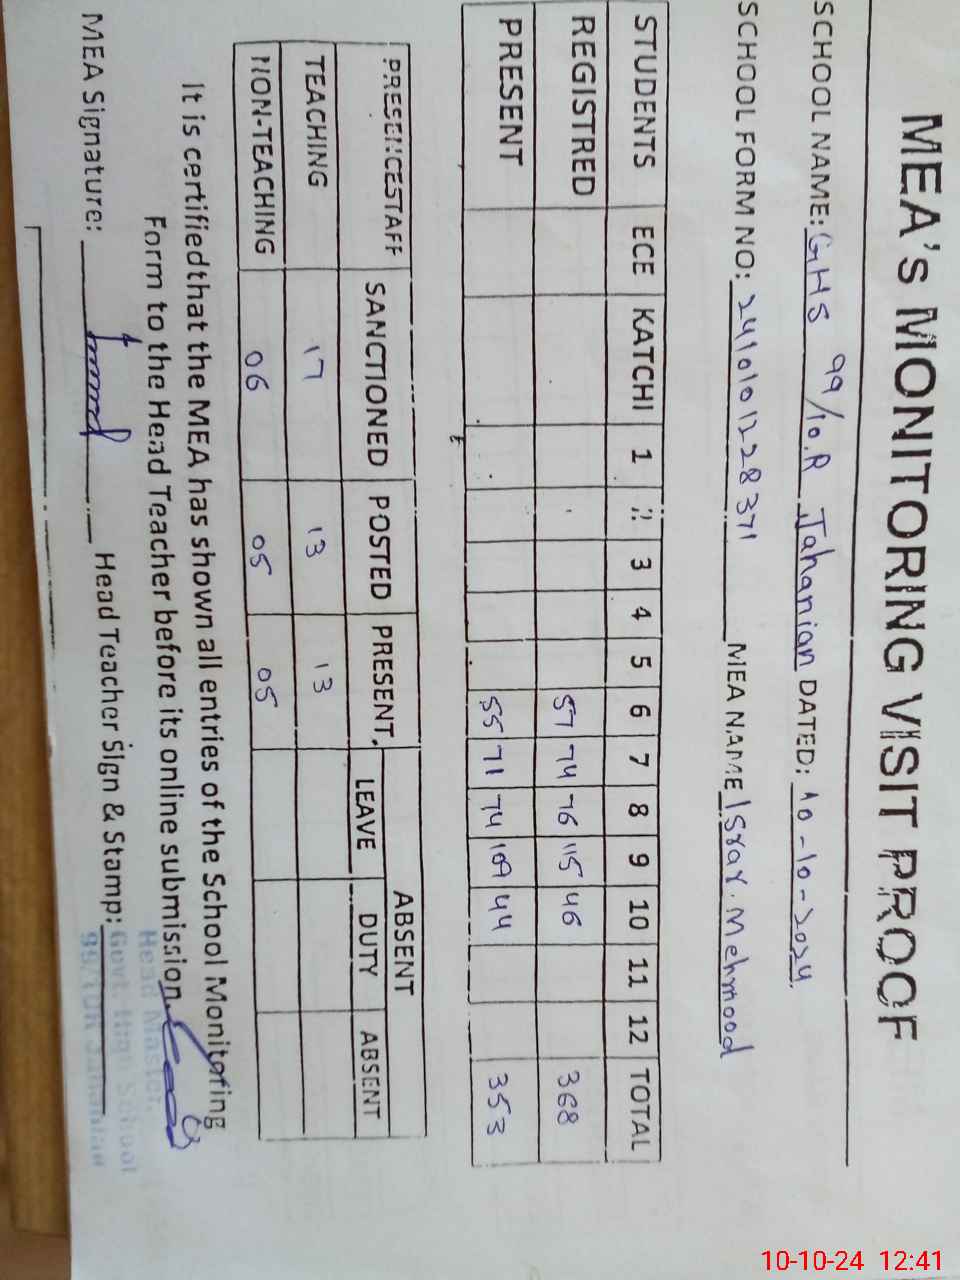 MEA's MONITORING VISIT PROOF
SCHOOL NAME: GHS 99/10.R Jahanian DATED: 10-10-2024
SCHOOL FORM NO: 2410101228371 MEA NAME Israr. Mehmood
STUDENTS ECE KATCHI 1 2 3 4 5 6 7 8 9 10 11 12 TOTAL
REGISTRED 57 74 76 115 46 368
PRESENT 55 71 74 109 44 353
PRESENCESTAFF SANCTIONED POSTED PRESENT ABSENT
LEAVE DUTY ABSENT
TEACHING 17 13 13
NON-TEACHING 06 05 05
It is certified that the MEA has shown all entries of the School Monitoring
Form to the Head Teacher before its online submission.
MEA Signature: Head Teacher Sign & Stamp:
Head Master,
Govt. High School
99/10R Jahanian
10-10-24 12:41